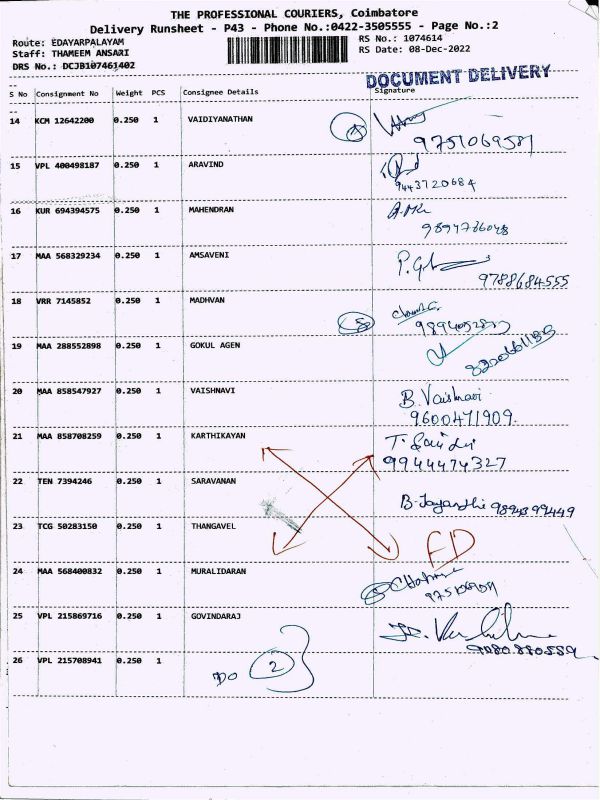 THE PROFESSIONAL COURIERS, Coimbatore
Delivery Runsheet - P43 - Phone No.:0422-3505555 - Page No.:2
Route: EDAYARPALAYAM
RS No.: 1074614
Staff: THAMEEM ANSARI
RS Date: 08-Dec-2022
DRS No.: DCJB107461402
DOCUMENT DELIVERY
S No Consignment No Weight PCS Consignee Details Signature
14 KCM 12642200 0.250 1 VAIDIYANATHAN
9751069581
15 VPL 400498187 0.250 1 ARAVIND
9443720684
16 KUR 694394575 0.250 1 MAHENDRAN
9894786048
17 MAA 568329234 0.250 1 AMSAVENI
9788684555
18 VRR 7145852 0.250 1 MADHVAN
19 MAA 288552898 0.250 1 GOKUL AGEN
20 MAA 858547927 0.250 1 VAISHNAVI B. Vaishnavi
9600471909.
21 MAA 858708259 0.250 1 KARTHIKAYAN
9944474327
22 TEN 7394246 0.250 1 SARAVANAN
B. Jayanthi 9894399449
23 TCG 50283150 0.250 1 THANGAVEL
FD
24 MAA 568400832 0.250 1 MURALIDARAN
25 VPL 215869716 0.250 1 GOVINDARAJ
9080880559
26 VPL 215708941 0.250 1
DO 2